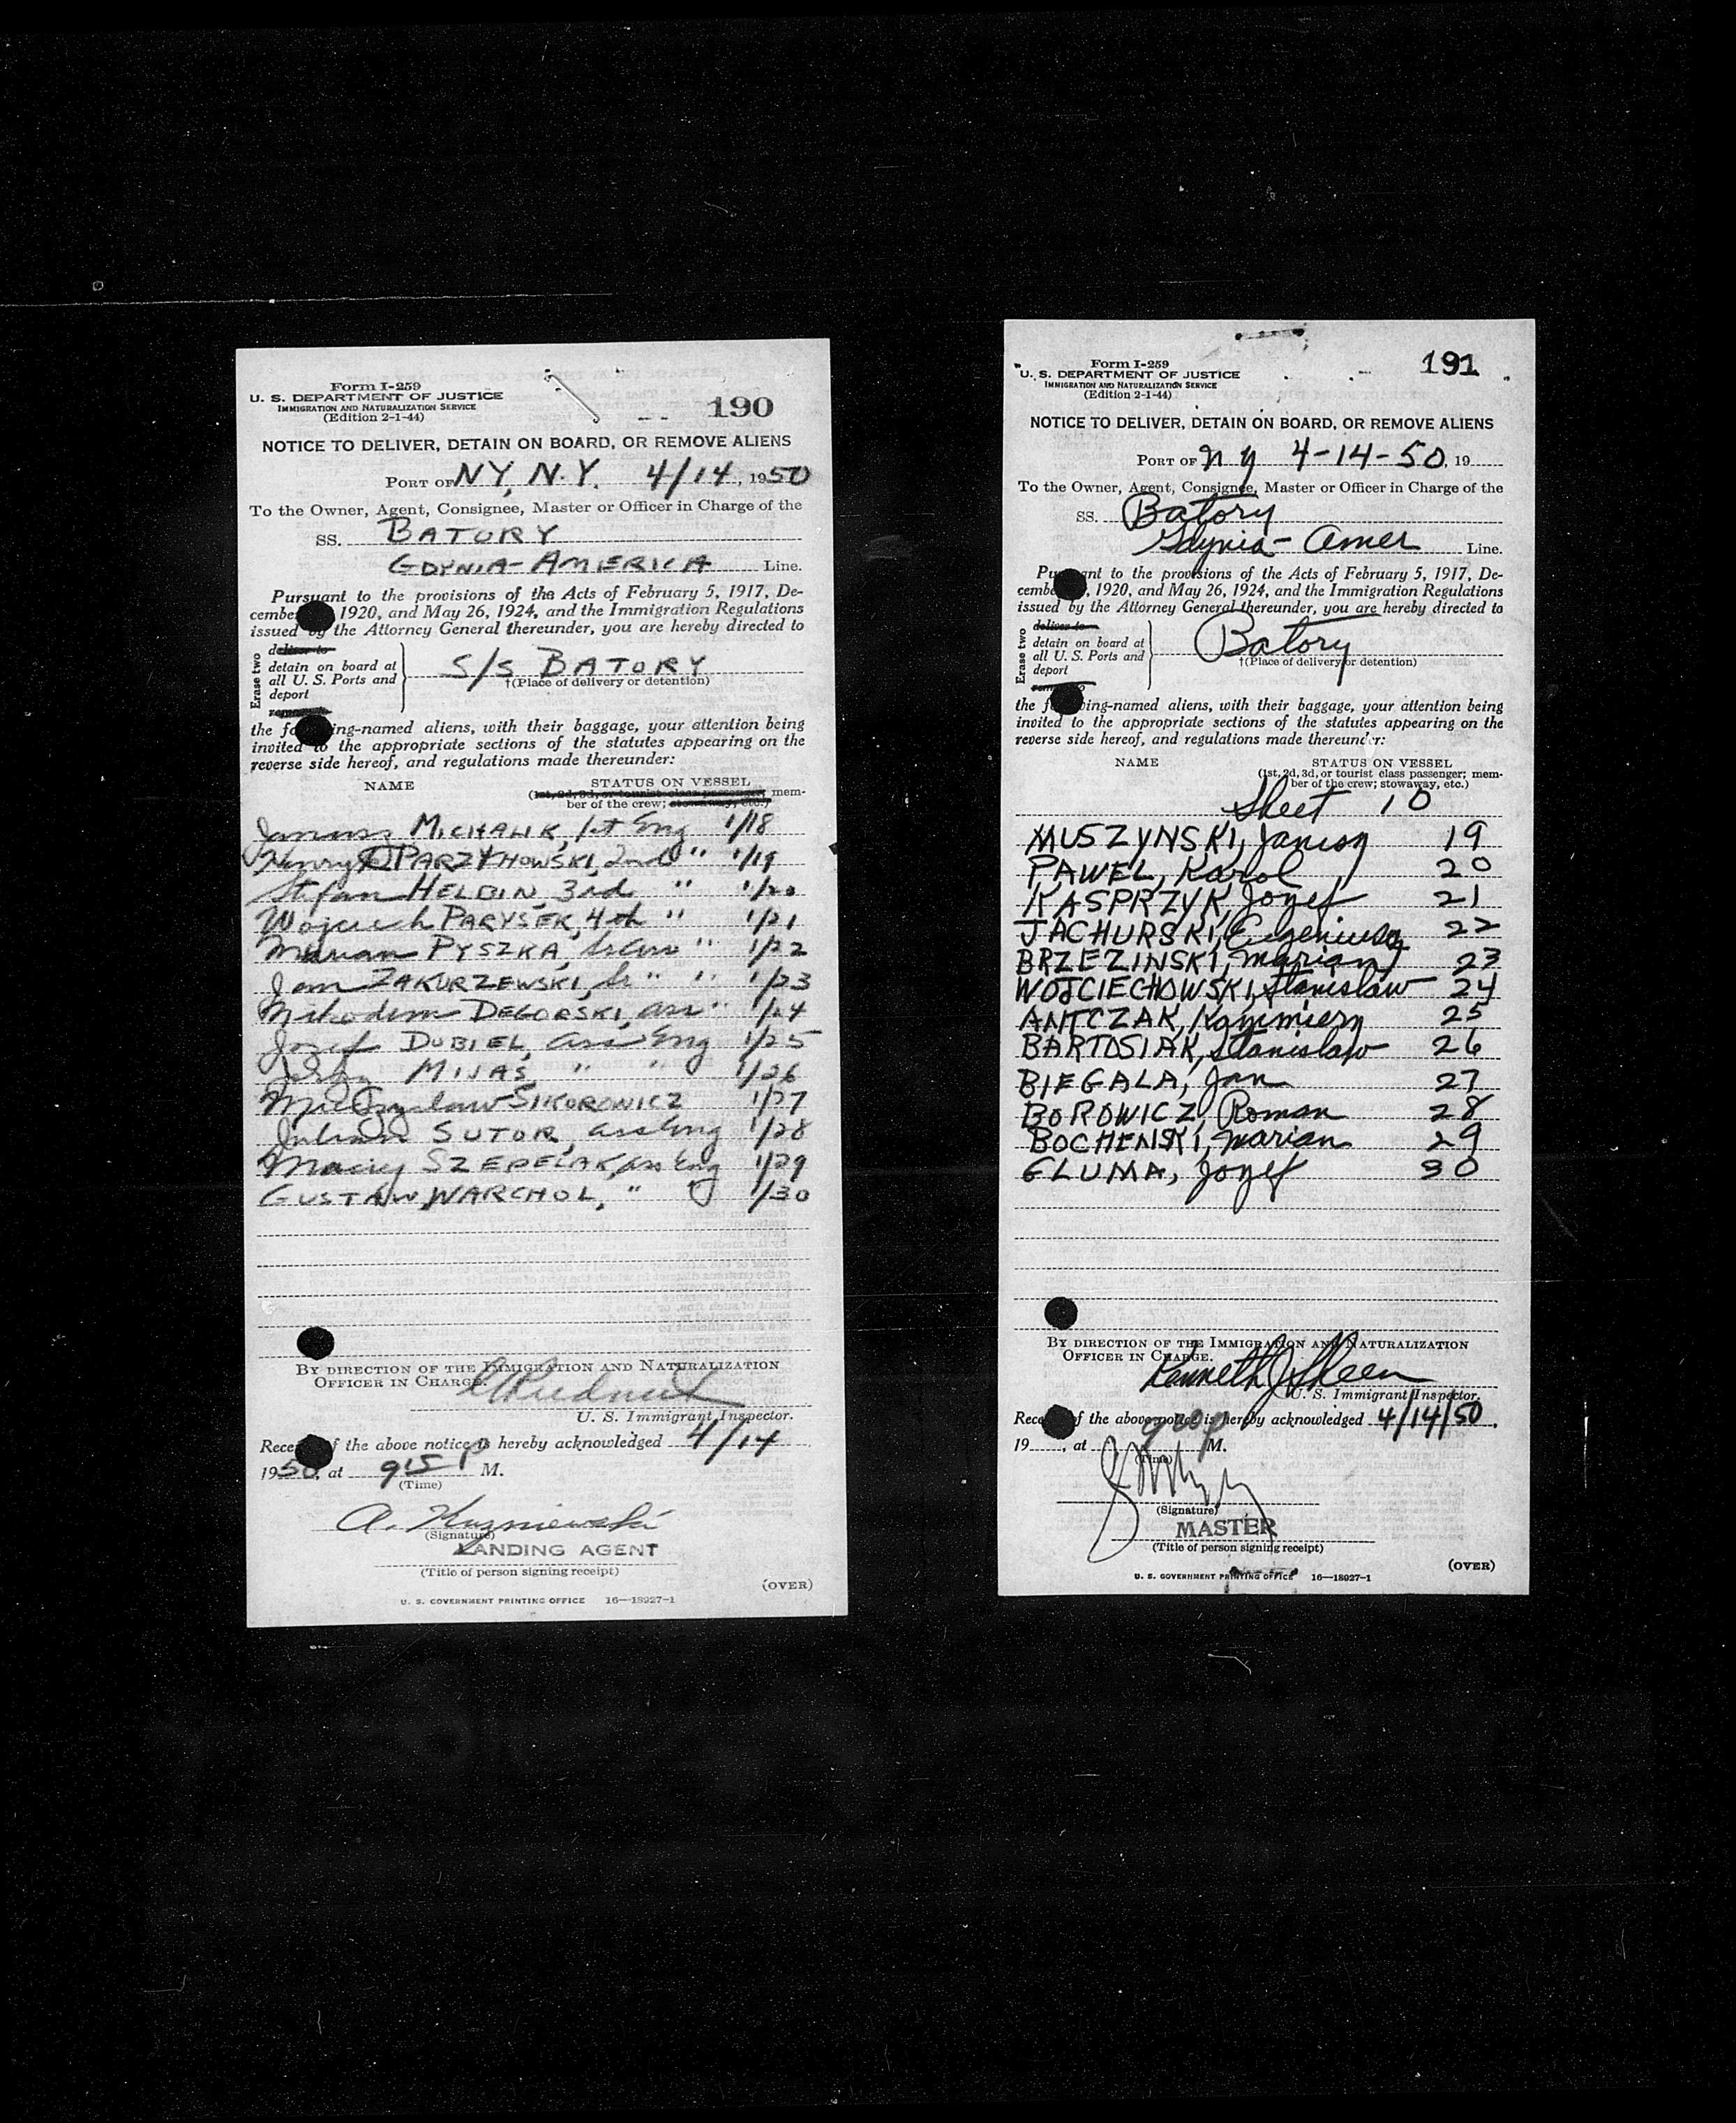 Form I-259
U. S. DEPARTMENT OF JUSTICE
IMMIGRATION AND NATURALIZATION SERVICE
(Edition 2-1-44)
190
NOTICE TO DELIVER, DETAIN ON BOARD, OR REMOVE ALIENS
PORT OF NY, N.Y. 4/14, 1950
To the Owner, Agent, Consignee, Master or Officer in Charge of the
SS. BATORY
GDYNIA-AMERICA Line.
Pursuant to the provisions of the Acts of February 5, 1917, De-
cembe 1920, and May 26, 1924, and the Immigration Regulations
issued by the Attorney General thereunder, you are hereby directed to
Erase two
deliver to
detain on board at
all U. S. Ports and
deport
remove to
S/S BATORY
†(Place of delivery or detention)
the fo ing-named aliens, with their baggage, your attention being
invited to the appropriate sections of the statutes appearing on the
reverse side hereof, and regulations made thereunder:
NAME STATUS ON VESSEL
(1st, 2d, 3d, or tourist class passenger; mem-
ber of the crew; stowaway, etc.)
MICHALIK, 1st Eng 1/18
Henryk PARZYKHOWSKI, 2nd " 1/19
Stefan HELBIN, 3rd " 1/20
Wojciech PARYSEK, 4th " 1/21
Marian PYSZKA, " 1/22
Jan ZAKURZEWSKI, " " 1/23
Nikodem DEGORSKI, ass " 1/24
Jozef DUBIEL, ass Eng 1/25
MIJAS, " " 1/26
Mieczyslaw SIKOROWICZ 1/27
Julian SUTOR, ass Eng 1/28
Maciej SZEPELAK, ass Eng 1/29
GUSTAW WARCHOL, " 1/30
BY DIRECTION OF THE IMMIGRATION AND NATURALIZATION
OFFICER IN CHARGE.
U. S. Immigrant Inspector.
Rece f the above notice is hereby acknowledged 4/14
1950, at 915 P M.
(Time)
A. Kuzniewski
(Signature)
LANDING AGENT
(Title of person signing receipt)
(OVER)
U. S. GOVERNMENT PRINTING OFFICE 16—18927-1
Form I-259
U. S. DEPARTMENT OF JUSTICE
IMMIGRATION AND NATURALIZATION SERVICE
(Edition 2-1-44)
191
NOTICE TO DELIVER, DETAIN ON BOARD, OR REMOVE ALIENS
PORT OF N Y 4-14-50, 19
To the Owner, Agent, Consignee, Master or Officer in Charge of the
SS. Batory
Gdynia-Amer Line.
Pu ant to the provisions of the Acts of February 5, 1917, De-
cembe , 1920, and May 26, 1924, and the Immigration Regulations
issued by the Attorney General thereunder, you are hereby directed to
Erase two
deliver to
detain on board at
all U. S. Ports and
deport
remove to
Batory
†(Place of delivery or detention)
the f wing-named aliens, with their baggage, your attention being
invited to the appropriate sections of the statutes appearing on the
reverse side hereof, and regulations made thereunder:
NAME STATUS ON VESSEL
(1st, 2d, 3d, or tourist class passenger; mem-
ber of the crew; stowaway, etc.)
Sheet 10
MUSZYNSKI, Janusz 19
PAWEL, Karol 20
KASPRZYK, Jozef 21
JACHURSKI, Eugeniusz 22
BRZEZINSKI, Marian 23
WOJCIECHOWSKI, Stanislaw 24
ANTCZAK, Kazimierz 25
BARTOSIAK, Stanislaw 26
BIEGALA, Jan 27
BOROWICZ, Roman 28
BOCHENSKI, Marian 29
GLUMA, Jozef 30
BY DIRECTION OF THE IMMIGRATION AND NATURALIZATION
OFFICER IN CHARGE.
Kenneth J Skeen
U. S. Immigrant Inspector.
Rece f the above notice is hereby acknowledged 4/14/50.
19 , at 900 P M.
(Time)
(Signature)
MASTER
(Title of person signing receipt)
(OVER)
U. S. GOVERNMENT PRINTING OFFICE 16—18927-1